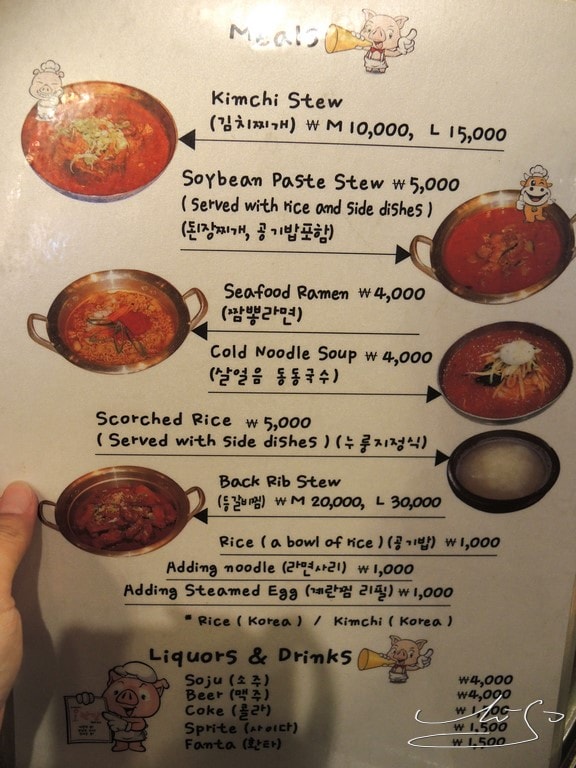 Meals
Kimchi Stew
(김치찌개) ₩ M 10,000, L 15,000
Soybean Paste Stew ₩5,000
(Served with rice and side dishes)
(된장찌개, 공기밥포함)
Seafood Ramen ₩4,000
(짬뽕라면)
Cold Noodle Soup ₩4,000
(살얼음 동동국수)
Scorched Rice ₩5,000
(Served with side dishes) (누룽지정식)
Back Rib Stew
(등갈비찜) ₩ M 20,000, L 30,000
Rice (a bowl of rice) (공기밥) ₩1,000
Adding noodle (라면사리) ₩1,000
Adding Steamed Egg (계란찜 리필) ₩1,000
* Rice (Korea) / Kimchi (Korea)
Liquors & Drinks
Soju (소주) ₩4,000
Beer (맥주) ₩4,000
Coke (콜라)
Sprite (사이다) ₩1,500
Fanta (환타) ₩1,500